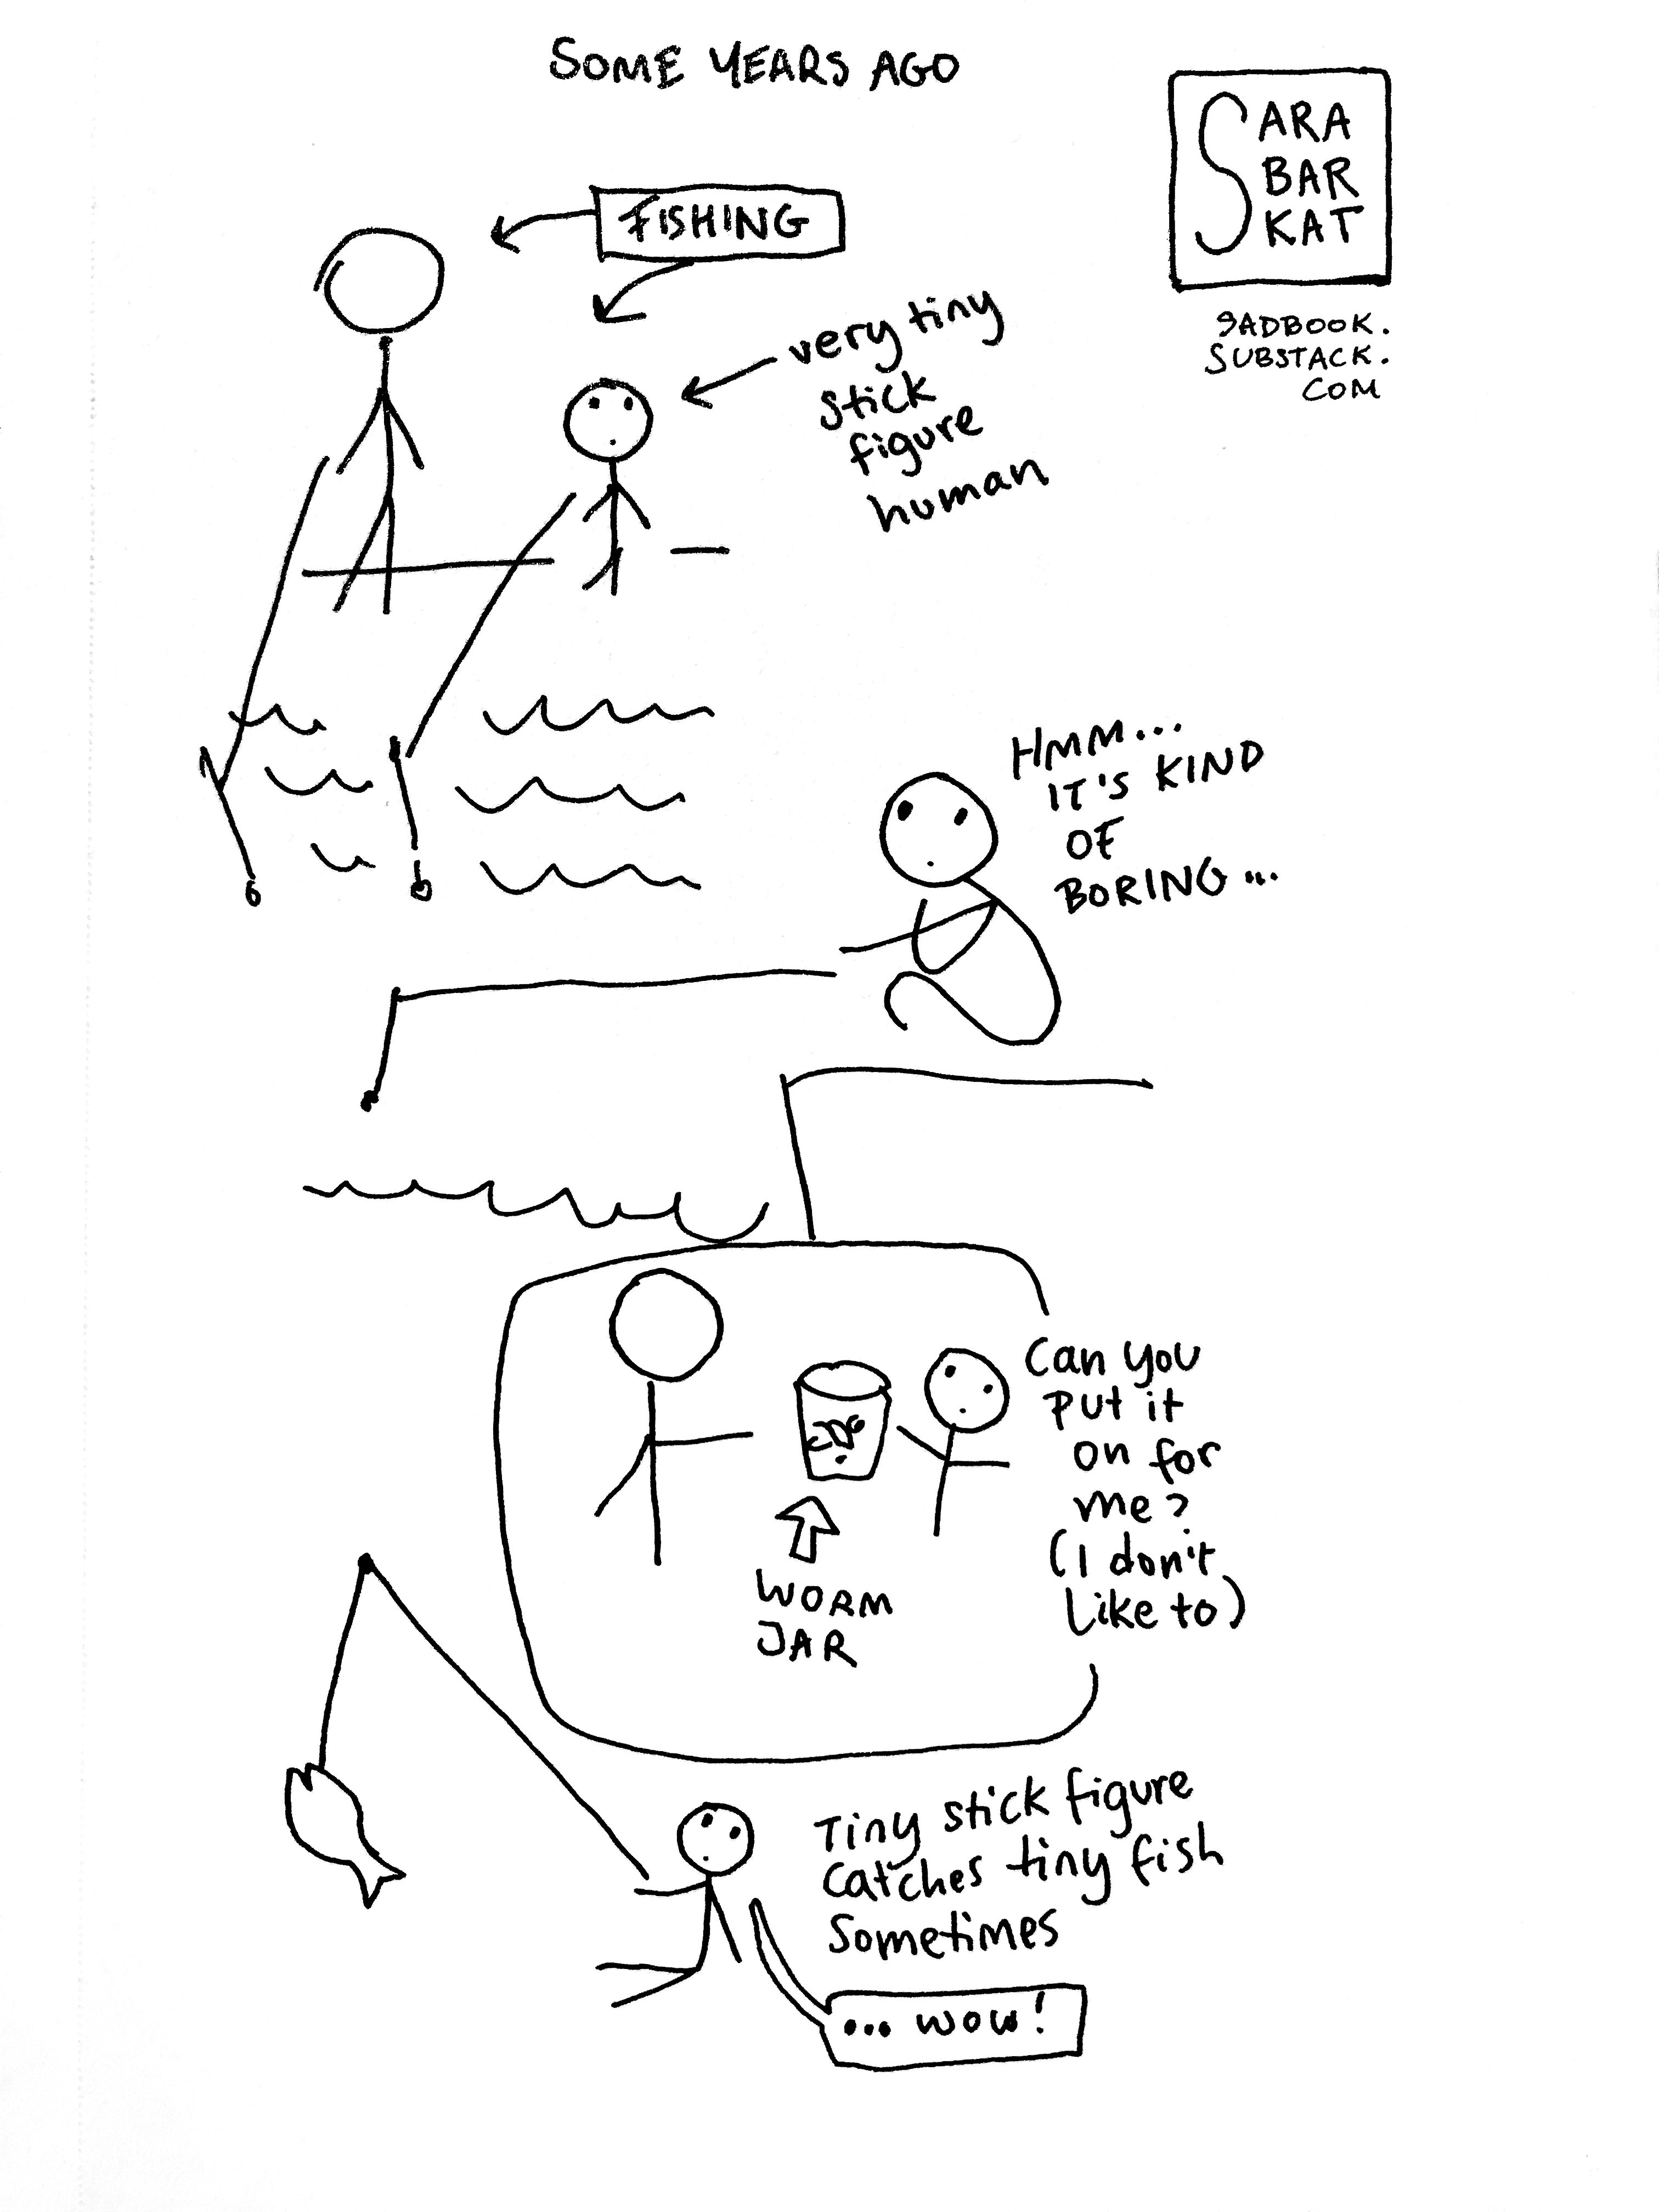 SOME YEARS AGO
SARA
BAR
KAT
SADBOOK.
SUBSTACK.
COM
FISHING
very tiny
stick
figure
human
HMM...
IT'S KIND
OF
BORING...
Can you
put it
on for
me?
(I don't
like to)
WORM
JAR
Tiny stick figure
catches tiny fish
sometimes
... wow!